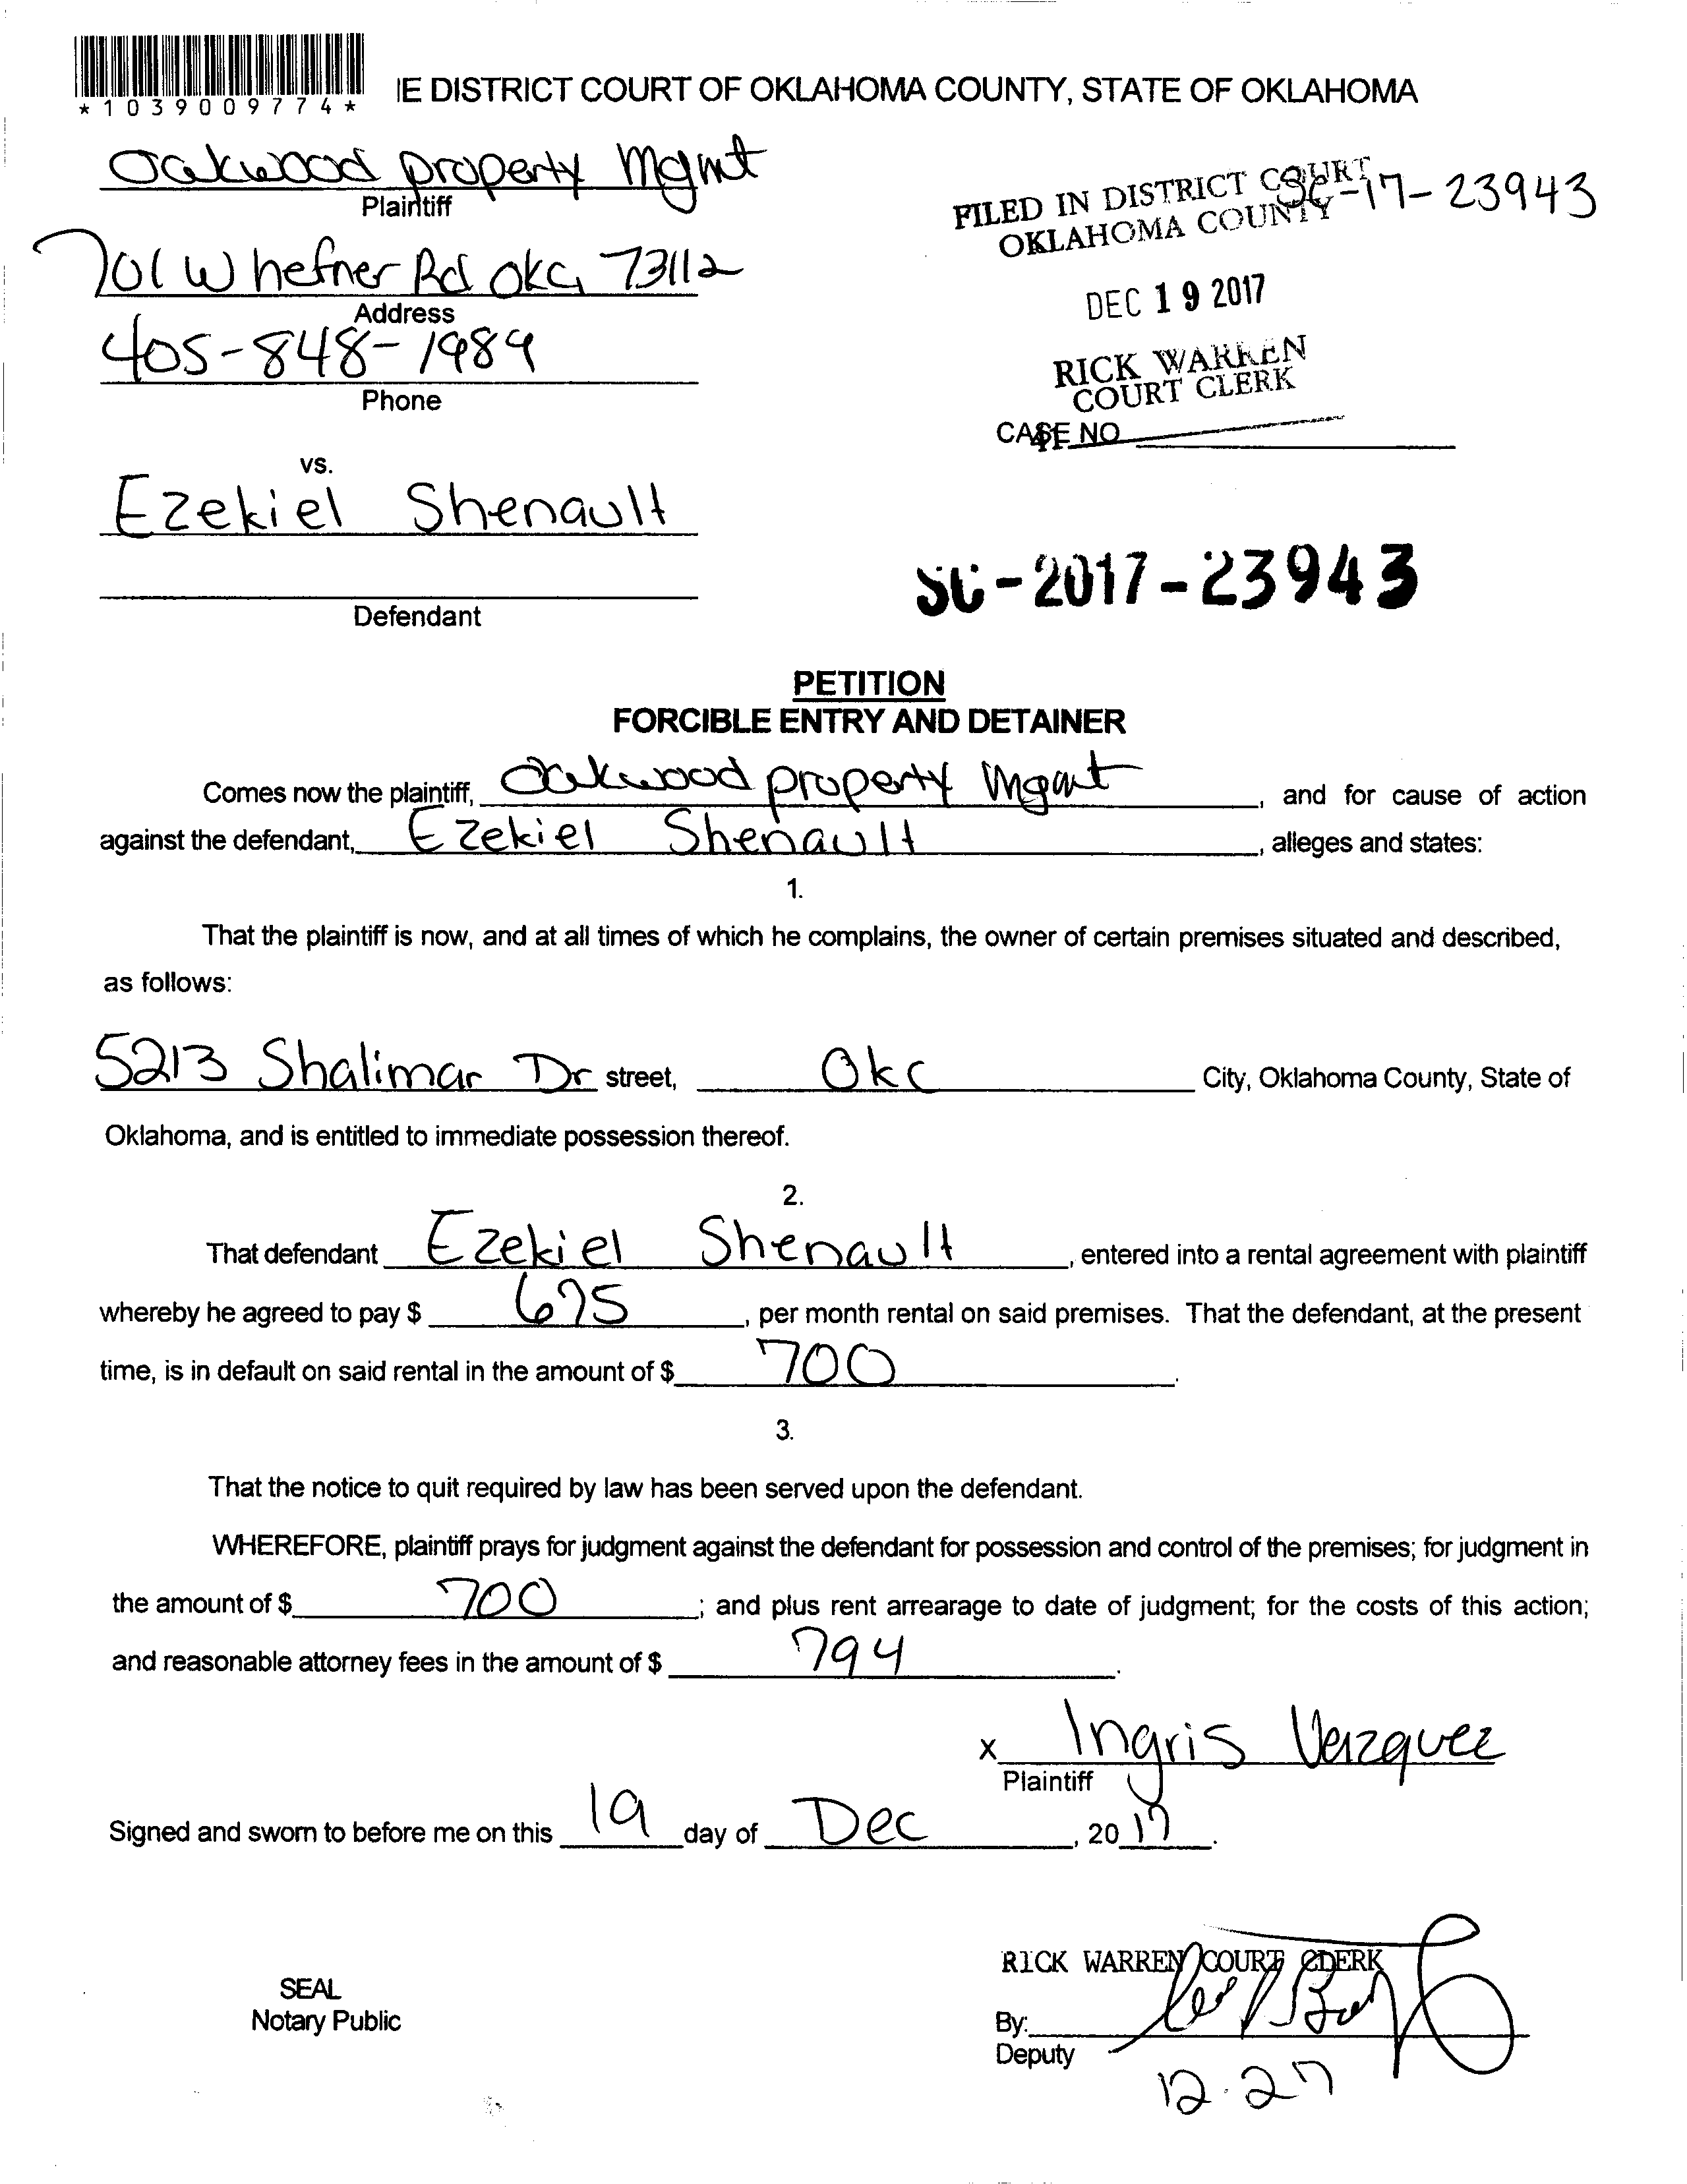 *1039009774*
IE DISTRICT COURT OF OKLAHOMA COUNTY, STATE OF OKLAHOMA
Oakwood property Mgmt
Plaintiff
FILED IN DISTRICT COURT
OKLAHOMA COUNTY
SC-17-23943
701 W hefner Rd OKC, 73112
Address
DEC 19 2017
405-848-1989
Phone
RICK WARREN
COURT CLERK
CASE NO
vs.
Ezekiel Shenault
SC-2017-23943
Defendant
PETITION
FORCIBLE ENTRY AND DETAINER
Comes now the plaintiff, Oakwood property Mgmt, and for cause of action
against the defendant, Ezekiel Shenault, alleges and states:
1.
That the plaintiff is now, and at all times of which he complains, the owner of certain premises situated and described,
as follows:
5213 Shalimar Dr street, Okc City, Oklahoma County, State of
Oklahoma, and is entitled to immediate possession thereof.
2.
That defendant Ezekiel Shenault, entered into a rental agreement with plaintiff
whereby he agreed to pay $ 675, per month rental on said premises. That the defendant, at the present
time, is in default on said rental in the amount of $ 700.
3.
That the notice to quit required by law has been served upon the defendant.
WHEREFORE, plaintiff prays for judgment against the defendant for possession and control of the premises; for judgment in
the amount of $ 700; and plus rent arrearage to date of judgment; for the costs of this action;
and reasonable attorney fees in the amount of $ 794.
x Ingris Vazquez
Plaintiff
Signed and sworn to before me on this 19 day of Dec, 2017.
RICK WARREN COURT CLERK
SEAL
Notary Public
By:
Deputy
12-27